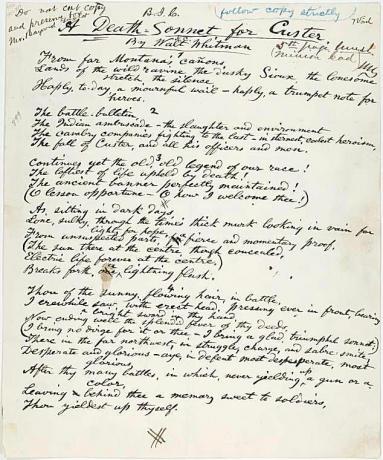 Do not cut copy
and preserve
B.I.C.
(follow copy strictly)
Wed
A Death-Sonnet for Custer
By Walt Whitman
5th page
minion lead
From far Montana's cañons,
Lands of the wild ravine, the dusky Sioux, the lonesome
stretch, the silence,
Haply, to-day, a mournful wail - haply, a trumpet note for
heroes.
2
The battle-bulletin,
The Indian ambuscade - the slaughter and environment
The cavalry companies fighting to the last - in sternest, coolest heroism,
The fall of Custer, and all his officers and men.
3
Continues yet the old, old legend of our race!
The loftiest of life upheld by death!
The ancient banner perfectly maintained!
(O lesson opportune - O how I welcome thee!)
As, sitting in dark days,
Lone, sulky, through the time's thick murk looking in vain for
light, for hope,
From unsuspected parts, a fierce and momentary proof,
(The sun there at the centre though concealed,
Electric life forever at the centre,)
Breaks forth, a lightning flash.
4
Thou of the sunny, flowing hair, in battle,
I erewhile saw, with erect head, pressing ever in front, bearing
a bright sword in thy hand,
Now ending well the splendid fever of thy deeds,
(I bring no dirge for it or thee - I bring a glad triumphal sonnet;)
There in the far northwest, in struggle, charge, and sabre-smite,
Desperate and glorious - aye, in defeat most desperate, most
glorious,
After thy many battles, in which, never yielding up a gun or a
color,
Leaving behind thee a memory sweet to soldiers,
Thou yieldest up thyself.